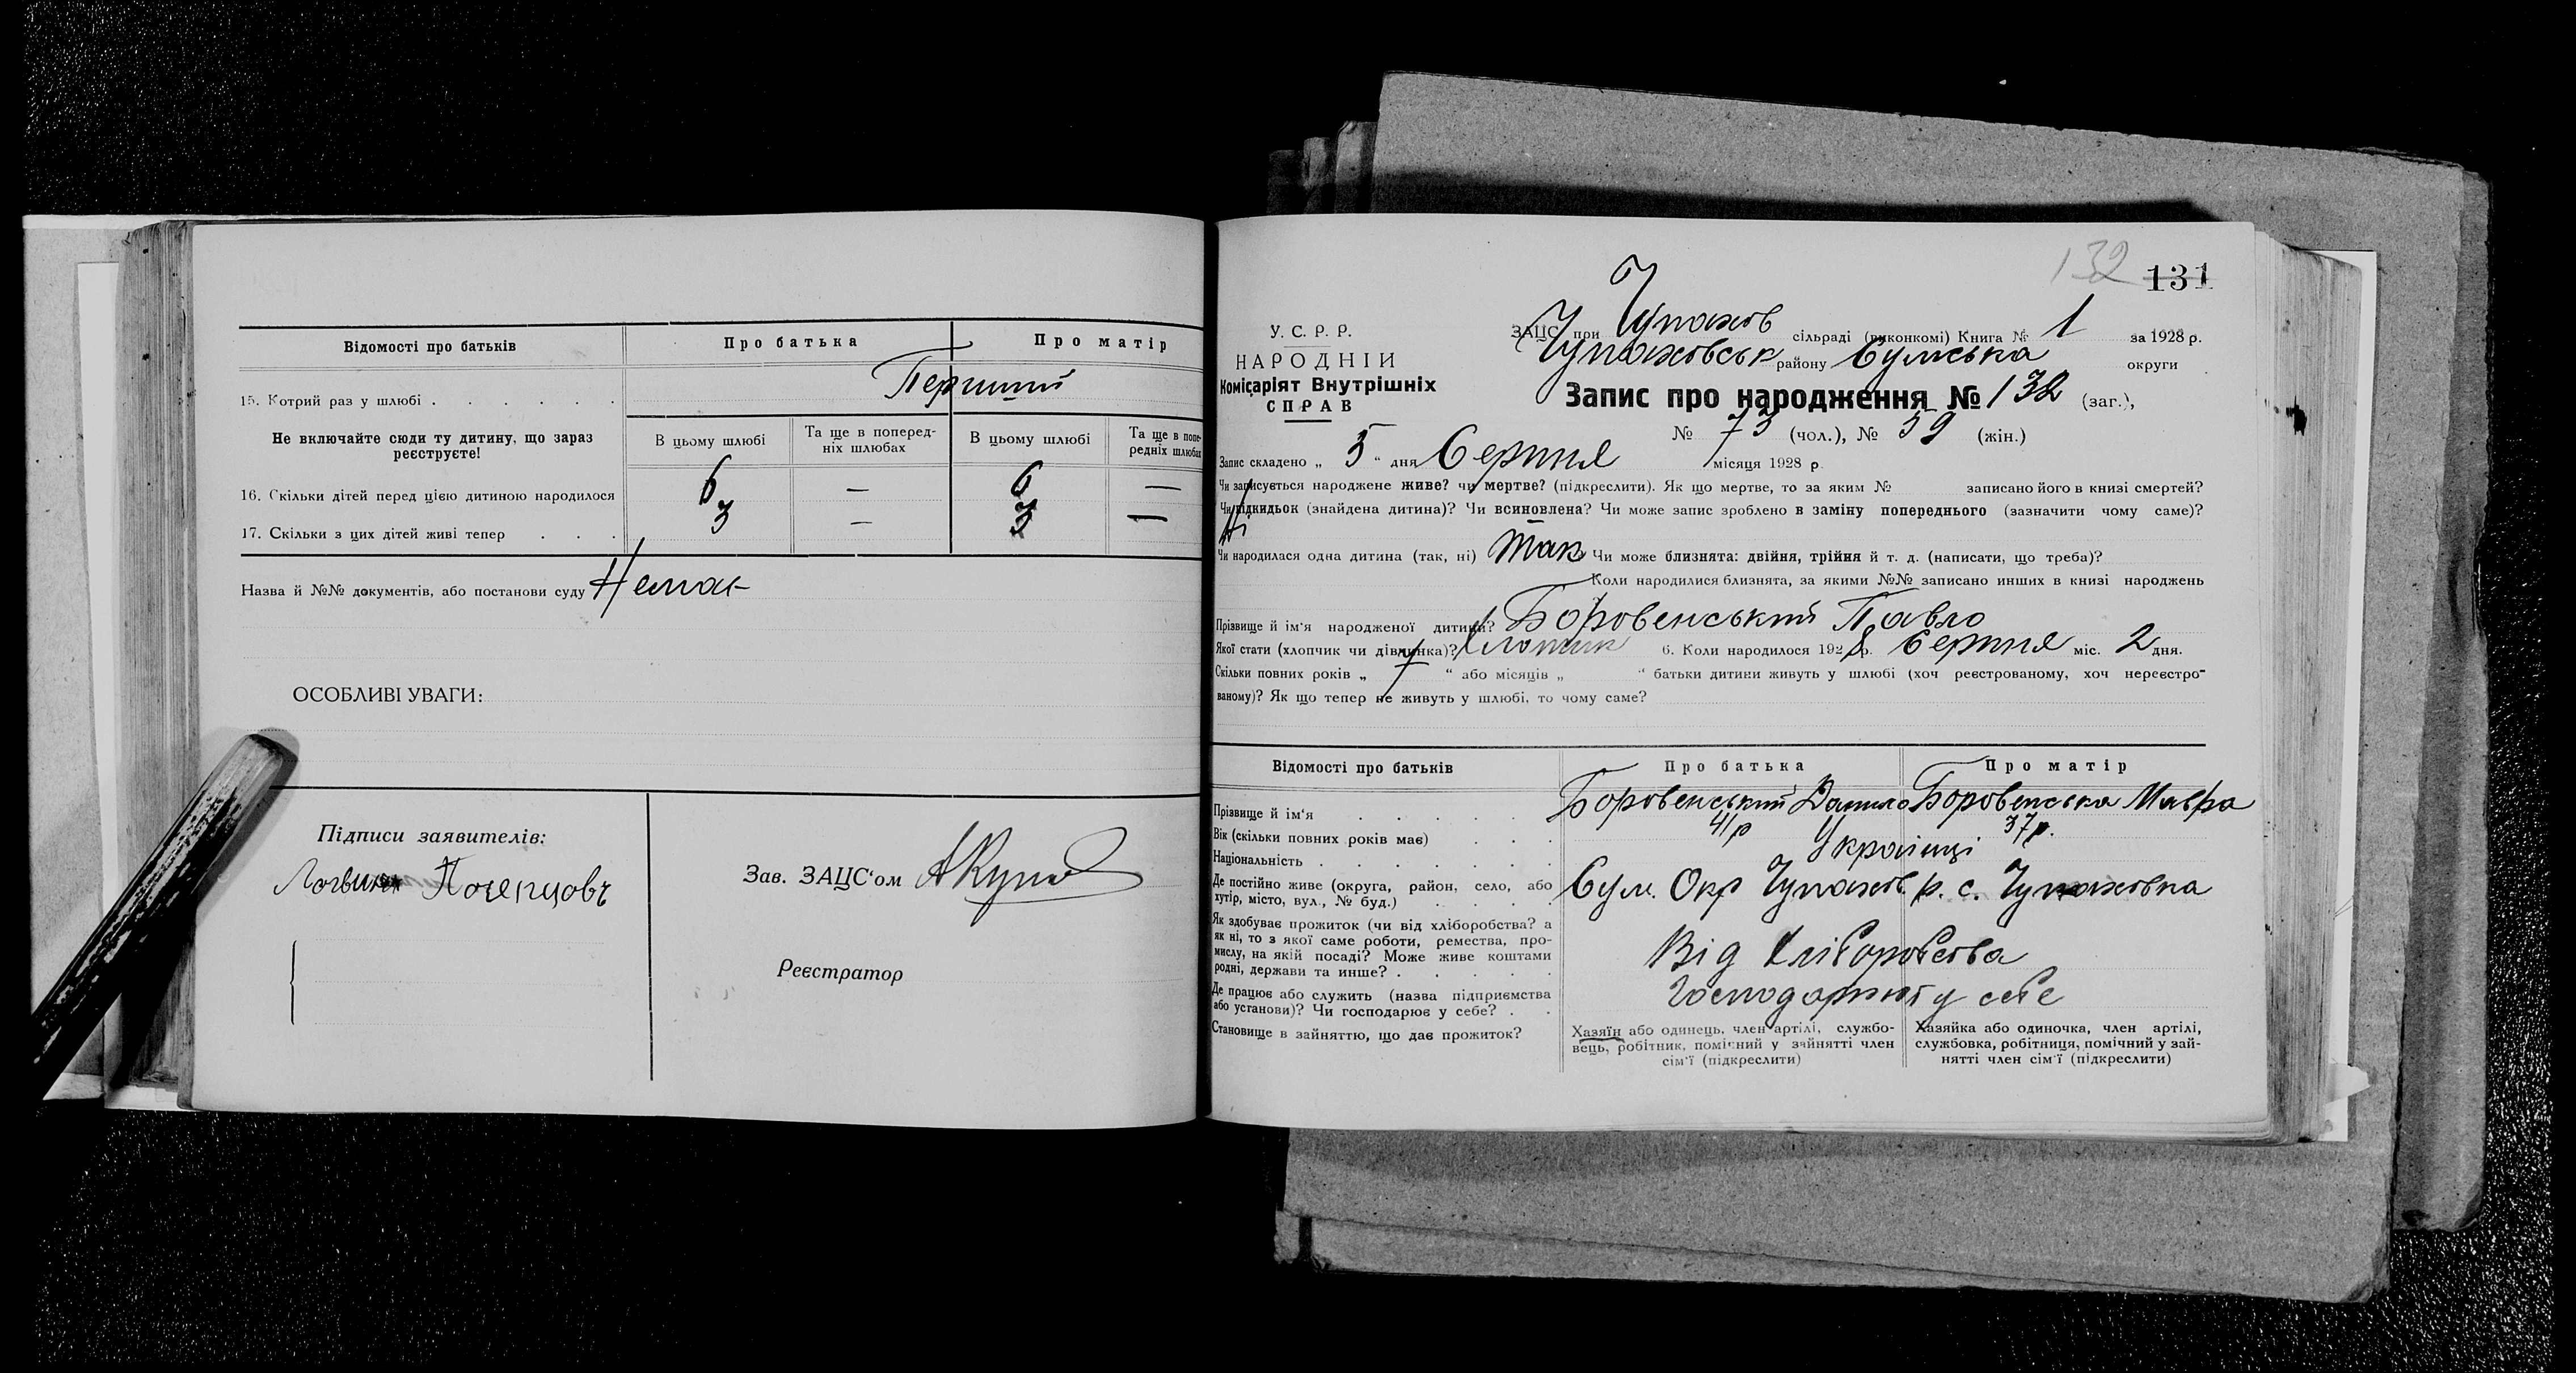 Відомості про батьків
Про батька
Про матір
15. Котрий раз у шлюбі
Перший
Не включайте сюди ту дитину, що зараз реєструєте!
В цьому шлюбі
Та ще в поперед-
ніх шлюбах
В цьому шлюбі
Та ще в попе-
редніх шлюбах
16. Скільки дітей перед цією дитиною народилося
6 — 6 —
17. Скільки з цих дітей живі тепер
3 — 3 —
Назва й №№ документів, або постанови суду Немає
ОСОБЛИВІ УВАГИ:
Підписи заявителів:
Логвин Почепцовъ
Зав. ЗАЦС‘ом
Реєстратор
132 131
У. С. Р. Р.
НАРОДНІЙ
Комісаріят Внутрішніх
СПРАВ
ЗАЦС при Чупахов сільраді (виконкомі) Книга № 1 за 1928 р.
Чупаховськ району Сумська округи
Запис про народження № 132 (заг.),
№ 73 (чол.), № 59 (жін.)
Запис складено „ 5 “ дня Серпня місяця 1928 р.
Чи записується народжене живе? чи мертве? (підкреслити). Як що мертве, то за яким № записано його в книзі смертей?
Чи підкидьок (знайдена дитина)? Чи всиновлена? Чи може запис зроблено в заміну попереднього (зазначити чому саме)?
Ні
Чи народилася одна дитина (так, ні) Так Чи може близнята: двійня, трійня й т. д. (написати, що треба)?
Коли народилися близнята, за якими №№ записано инших в книзі народжень
Прізвище й ім‘я народженої дитини? Боровенський Павло
Якої стати (хлопчик чи дівчинка)? Хлопчик 6. Коли народилося 1928 р. Серпня міс. 2 дня.
Скільки повних років „ “ або місяців „ “ батьки дитини живуть у шлюбі (хоч реєстрованому, хоч нереєстро-
ваному)? Як що тепер не живуть у шлюбі, то чому саме?
Відомості про батьків
Про батька
Про матір
Прізвище й ім‘я
Боровенський Данило Боровенська Мавра
Вік (скільки повних років має)
41 р 37 р.
Національність
Українці
Де постійно живе (округа, район, село, або
хутір, місто, вул., № буд.)
Сум. Окр Чупахов. р. с. Чупаховка
Як здобуває прожиток (чи від хліборобства? а
як ні, то з якої саме роботи, ремества, про-
мислу, на якій посаді? Може живе коштами
родні, держави та инше?
Від Хліборобства
Де працює або служить (назва підприємства
або установи)? Чи господарює у себе?
Господарюют у себе
Становище в зайняттю, що дає прожиток?
Хазяїн або одинець, член артілі, службо-
вець, робітник, помічний у зайнятті член
сім‘ї (підкреслити)
Хазяйка або одиночка, член артілі,
службовка, робітниця, помічний у зай-
нятті член сім‘ї (підкреслити)